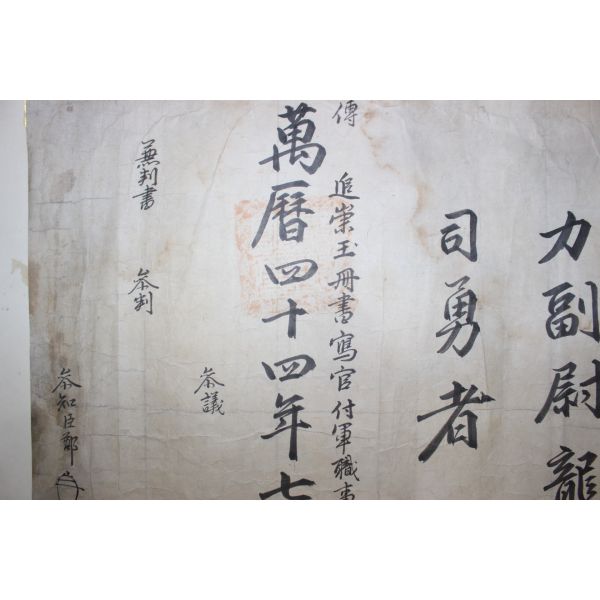 力副尉龍
司勇者
傳
追崇玉冊書寫官付軍職事
萬曆四十四年七
參議
兼判書 參判
參知臣鄭